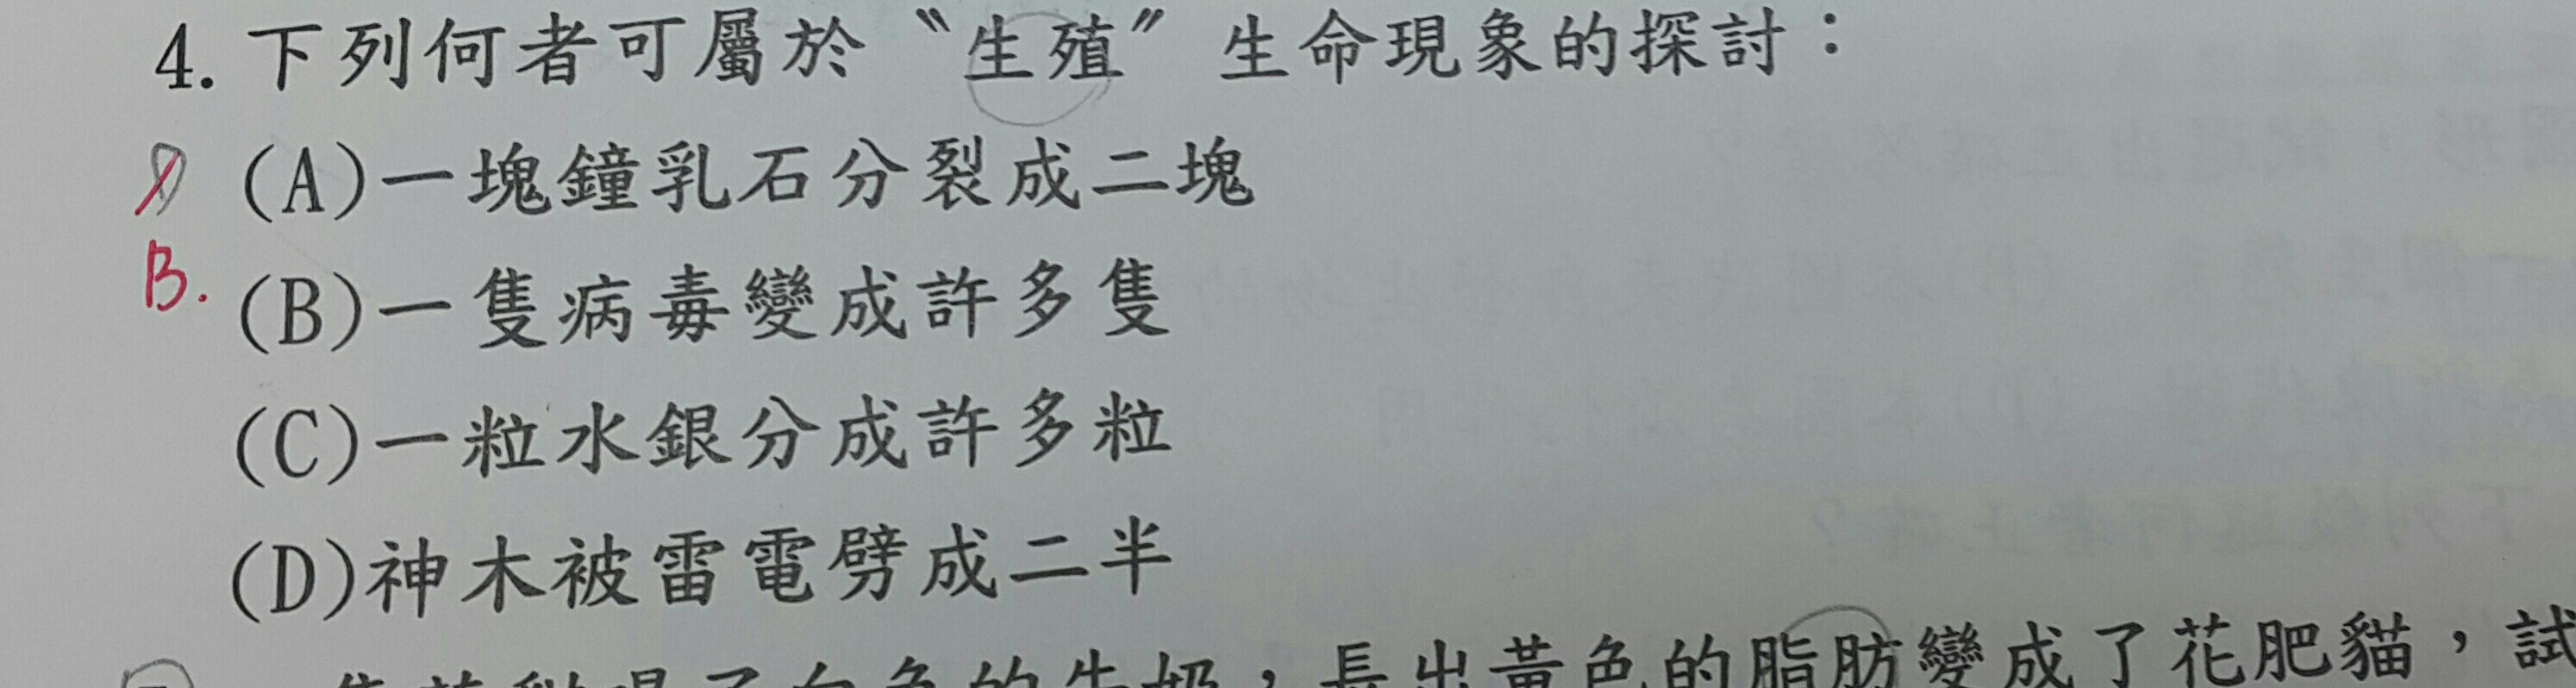 4. 下列何者可屬於〝生殖〞生命現象的探討：
(A)一塊鐘乳石分裂成二塊
B.
(B)一隻病毒變成許多隻
(C)一粒水銀分成許多粒
(D)神木被雷電劈成二半
色的牛奶，長出黃色的脂肪變成了花肥貓，試